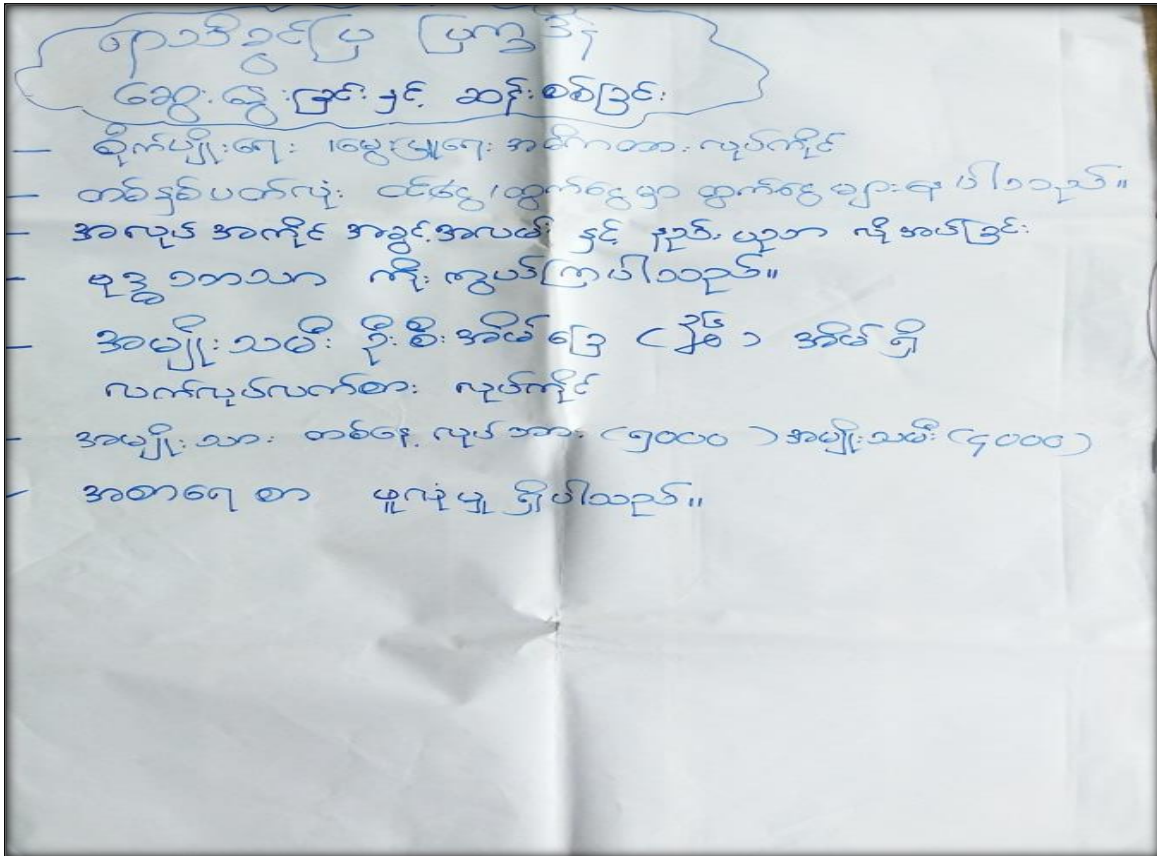 ရာသီခွင်ပြ ပြက္ခဒိန်
ဆွေးနွေးခြင်းနှင့် ဆန်းစစ်ခြင်း
– စိုက်ပျိုးရေး၊ မွေးမြူရေး အဓိကထား လုပ်ကိုင်
– တစ်နှစ်ပတ်လုံး ဝင်ငွေ/ထွက်ငွေမှာ ထွက်ငွေများနေပါသည်။
– အလုပ်အကိုင် အခွင့်အလမ်း နှင့် နည်းပညာ လိုအပ်ခြင်း
– ဗုဒ္ဓဘာသာ ကိုးကွယ်ကြပါသည်။
– အမျိုးသမီး ဦးစီးအိမ်ခြေ ( ) အိမ်ရှိ
လက်လုပ်လက်စား လုပ်ကိုင်
– အမျိုးသား တစ်နေ့ လုပ်အား (၅၀၀၀) အမျိုးသမီး (၄၀၀၀)
– အစာရေစာ ဖူလုံမှု ရှိပါသည်။